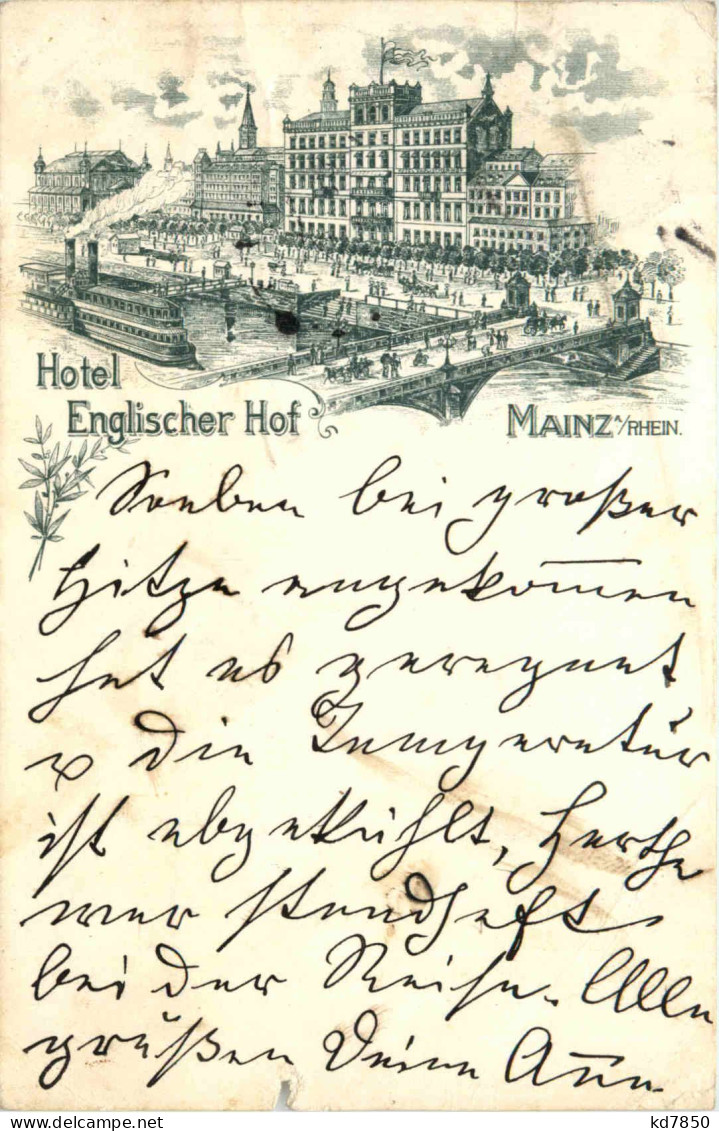 Hotel
Englischer Hof
MAINZ A/RHEIN.
Soeben bei großer
Hitze angekom̅en
hat es geregnet
u die Temperatur
ist abgekühlt, Herthe
war standhaft
bei der Reise. Alle
grüßen Deine An̅a.
kd7850